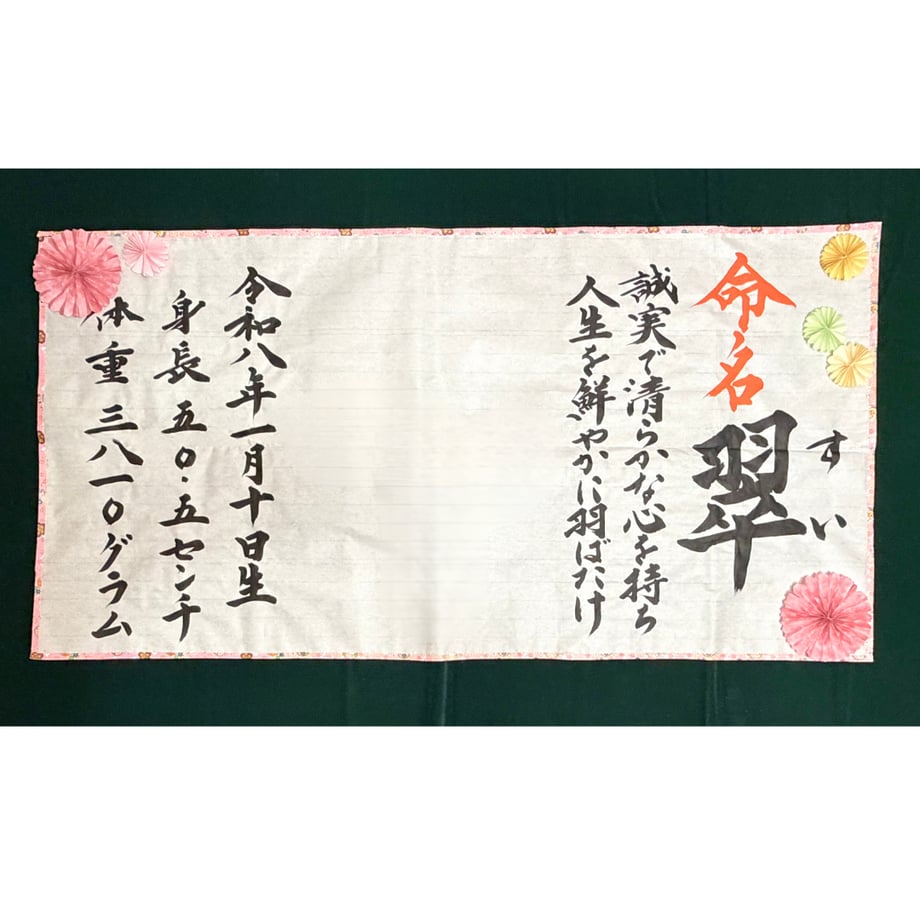 命名
翠
すい
誠実で清らかな心を持ち
人生を鮮やかに羽ばたけ
令和八年一月十日生
身長五〇・五センチ
体重三八一〇グラム